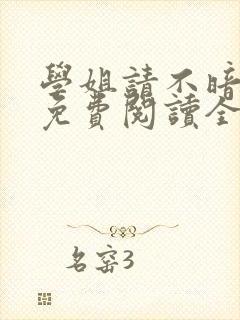 學姐請不暗
免費閱讀全
名窑3